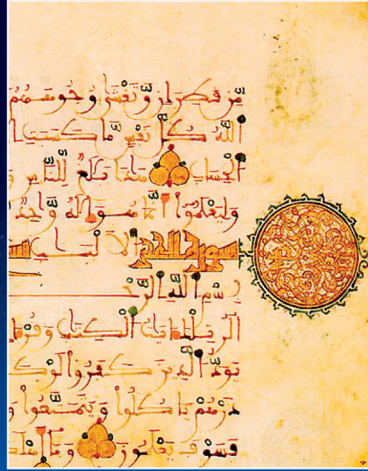 مِّن قَطِرَانٍ وَّتَغْشَىٰ وُجُوهَهُمُ
اللَّهُ كُلَّ نَفْسٍ مَّا كَسَبَتِ ا
الْحِسَابِ هَٰذَا بَلَٰغٌ لِّلنَّاسِ وَ
وَلِيَعْلَمُوا أَنَّمَا هُوَ إِلَٰهٌ وَّٰحِدٌ
سورة الحجر الالبب
بِسْمِ اللَّهِ الرَّحْـ
الر تِلْكَ ءَايَٰتُ الْكِتَٰبِ وَقُرْءَا
يَوَدُّ الَّذِينَ كَفَرُوا لَوْ كَـ
ذَرْهُمْ يَاكُلُوا وَيَتَمَتَّعُوا وَ
فَسَوْفَ يَعْلَمُونَ وَمَا أَهْلَـ